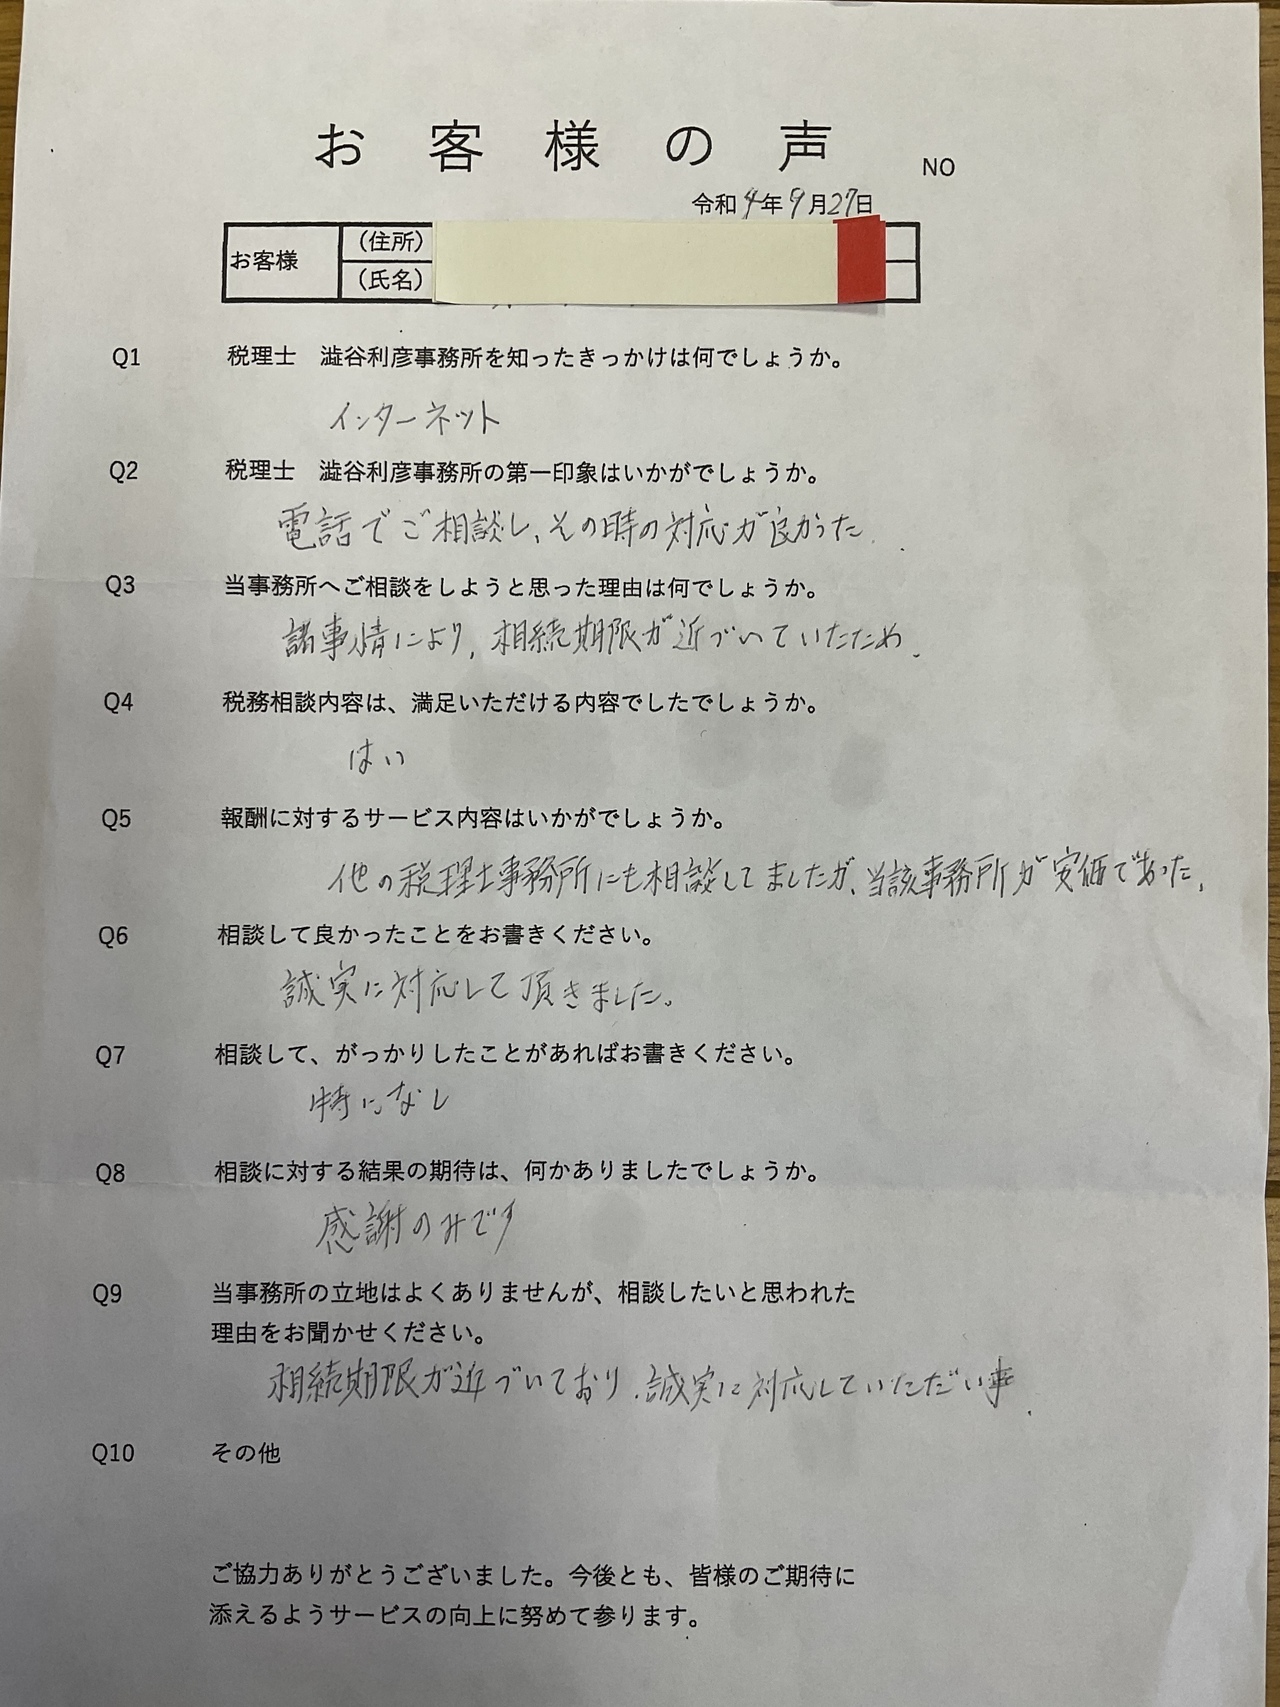 お客様の声
NO
令和4年9月27日
お客様
(住所)
(氏名)
Q1 税理士 澁谷利彦事務所を知ったきっかけは何でしょうか。
インターネット
Q2 税理士 澁谷利彦事務所の第一印象はいかがでしょうか。
電話でご相談し、その時の対応が良かった.
Q3 当事務所へご相談をしようと思った理由は何でしょうか。
諸事情により、相続期限が近づいていたため.
Q4 税務相談内容は、満足いただける内容でしたでしょうか。
はい
Q5 報酬に対するサービス内容はいかがでしょうか。
他の税理士事務所にも相談してましたが、当該事務所が安価であった、
Q6 相談して良かったことをお書きください。
誠実に対応して頂きました。
Q7 相談して、がっかりしたことがあればお書きください。
特になし
Q8 相談に対する結果の期待は、何かありましたでしょうか。
感謝のみです
Q9 当事務所の立地はよくありませんが、相談したいと思われた
理由をお聞かせください。
相続期限が近づいており、誠実に対応していただい事.
Q10 その他
ご協力ありがとうございました。今後とも、皆様のご期待に
添えるようサービスの向上に努めて参ります。